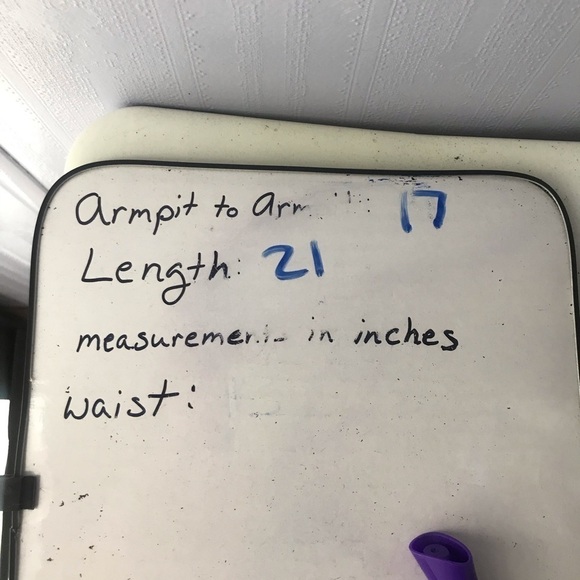 Armpit to Arm : 17
Length: 21
measurements in inches
Waist: